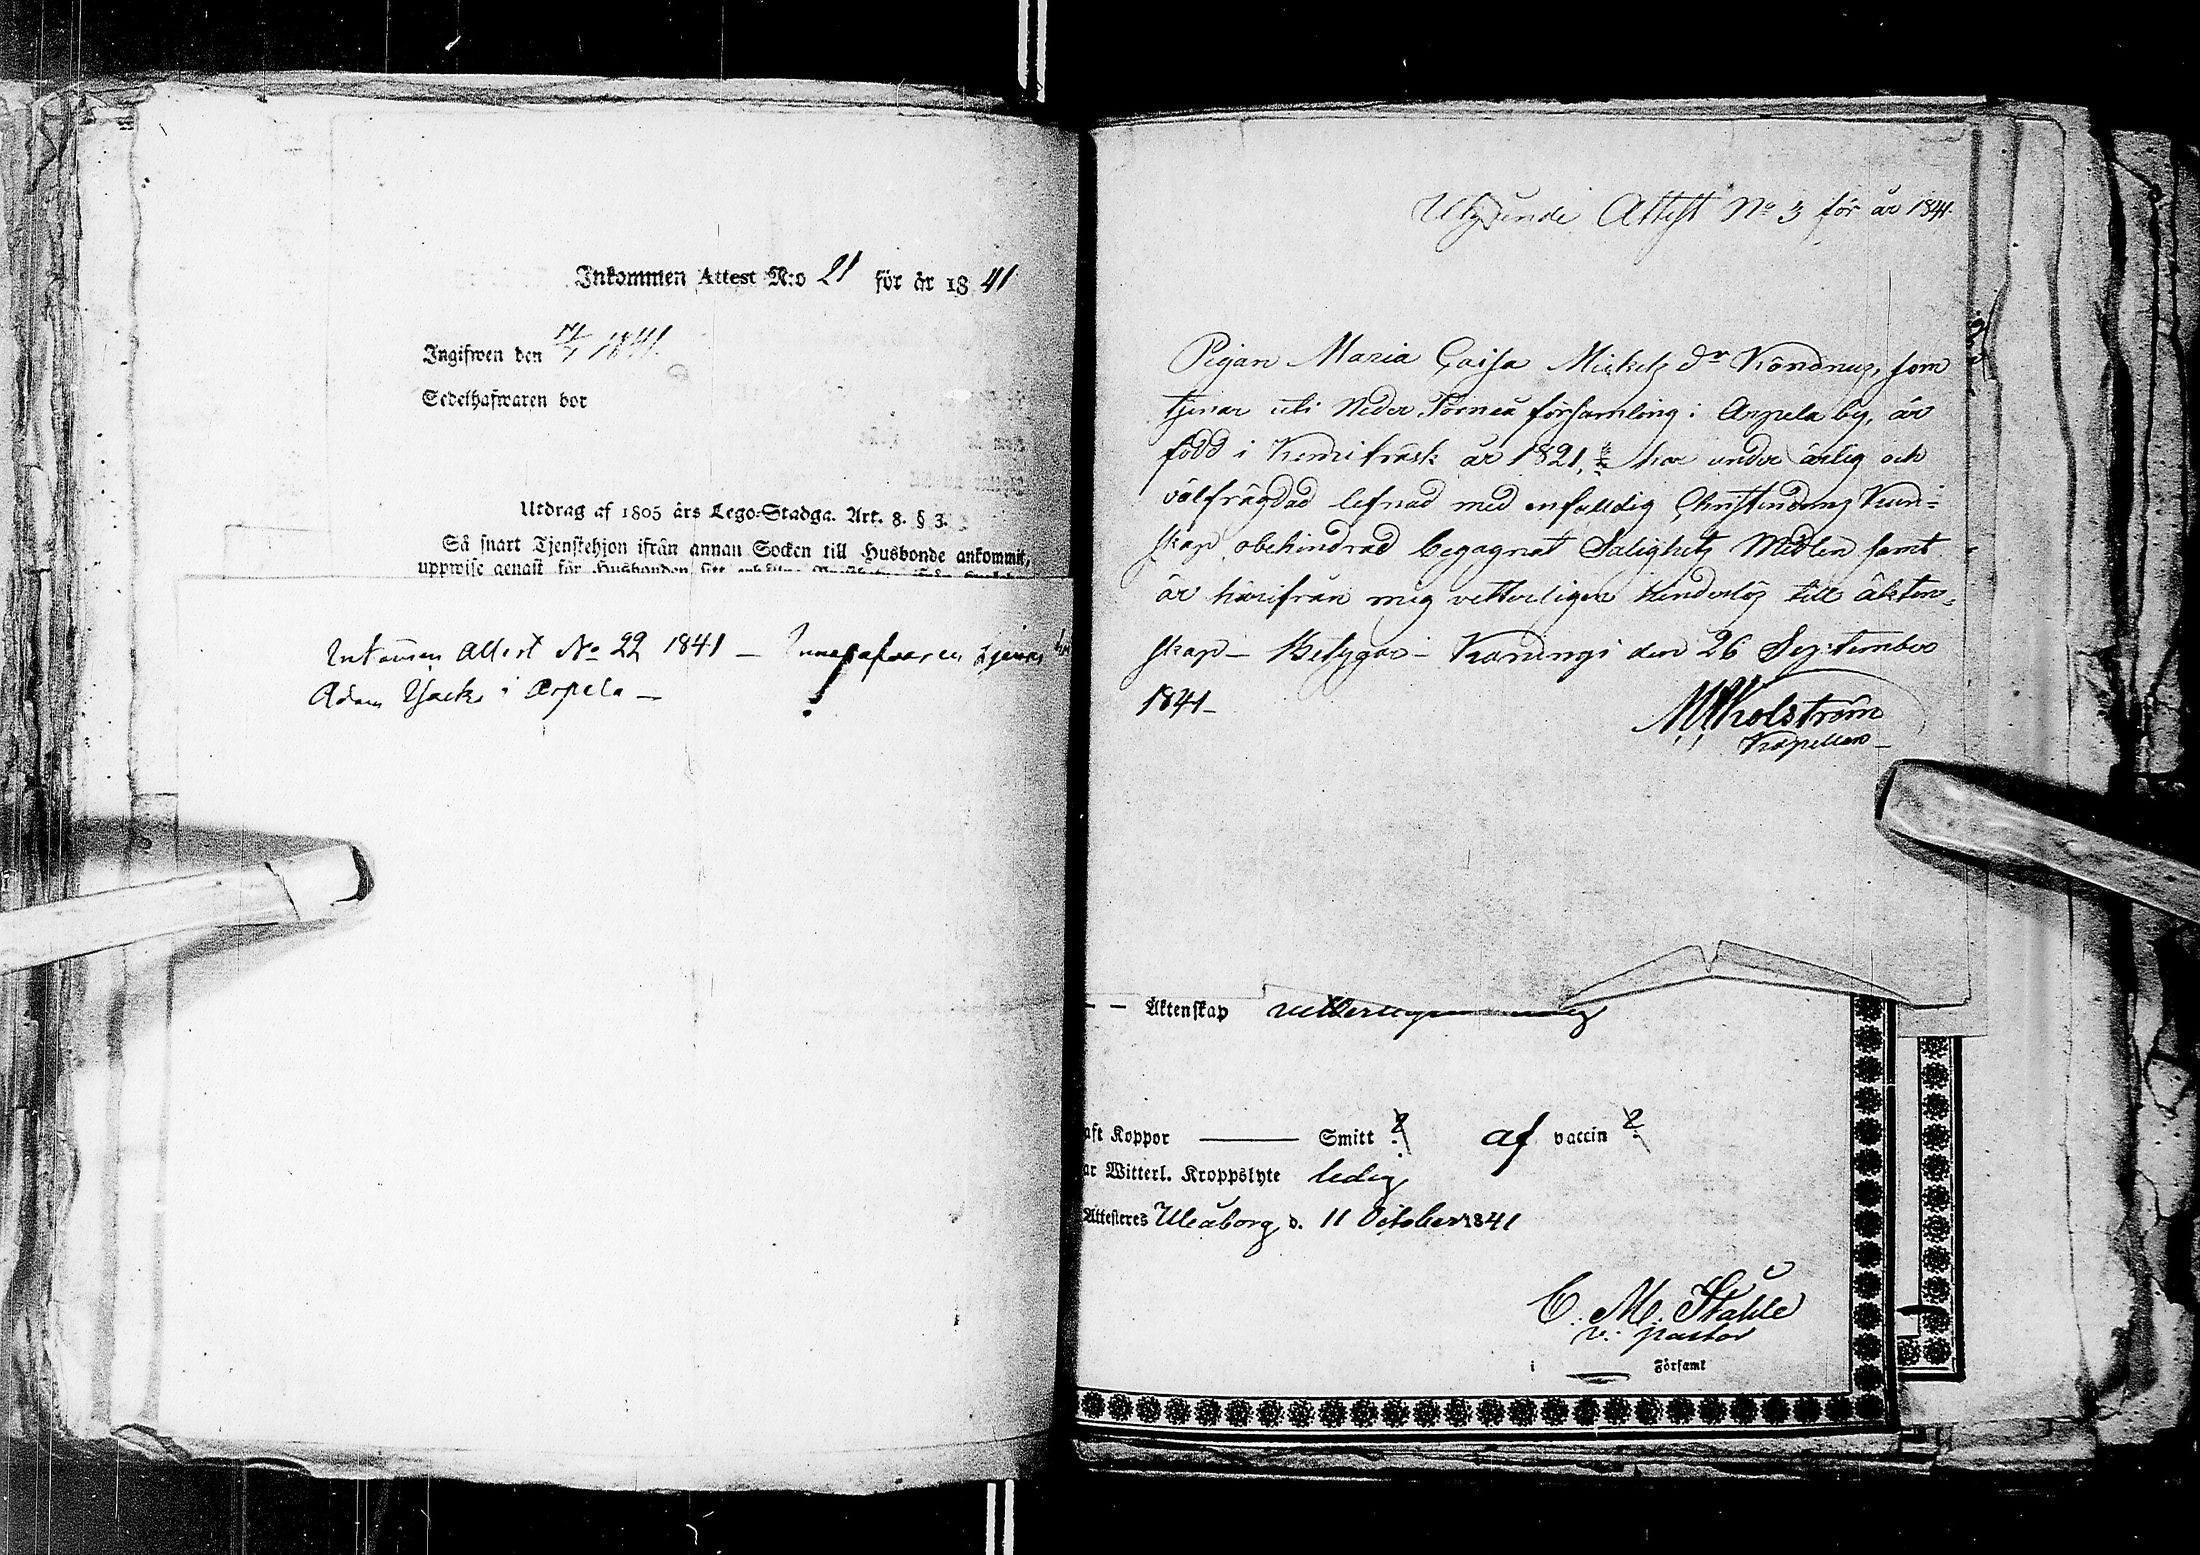 Inkommen Attest N:o 21 för år 1841
Ingifwen den 1841.
Sedelhafwaren bor
Utdrag af 1805 års Lego-Stadga. Art. 8. § 3.
Så snart Tjenstehjon ifrån annan Socken till Husbonde ankommit,
uppwise genast för Husbonden sitt
Inkommen Attest No 22 1841 — Innehafvaren tjenar
Adam i Arpela —
Utgående Attest No 3 för år 1841.
Pigan Maria Caisa Mickels dr Köndnus, som
tjenar uti Neder Torneå församling i Arpela by, är
född i Kemiträsk år 1821, har under ärlig och
välfrägdad lefnad med enfaldig Christendoms Kun-
skap obehindrad begagnat Salighets Medlen samt
är härifrån mig vetterligen hinderlös till äkten-
skap — Betygar — Karungi den 26 September
1841 —
Kapellan —
— — Äktenskap
aft Koppor ——— Smitt ? af vaccin ?
ar Witterl. Kroppslyte ledig
Attesteres Uleåborg d. 11 October 1841
C. M. Ståhle
v. pastor
i — Församl